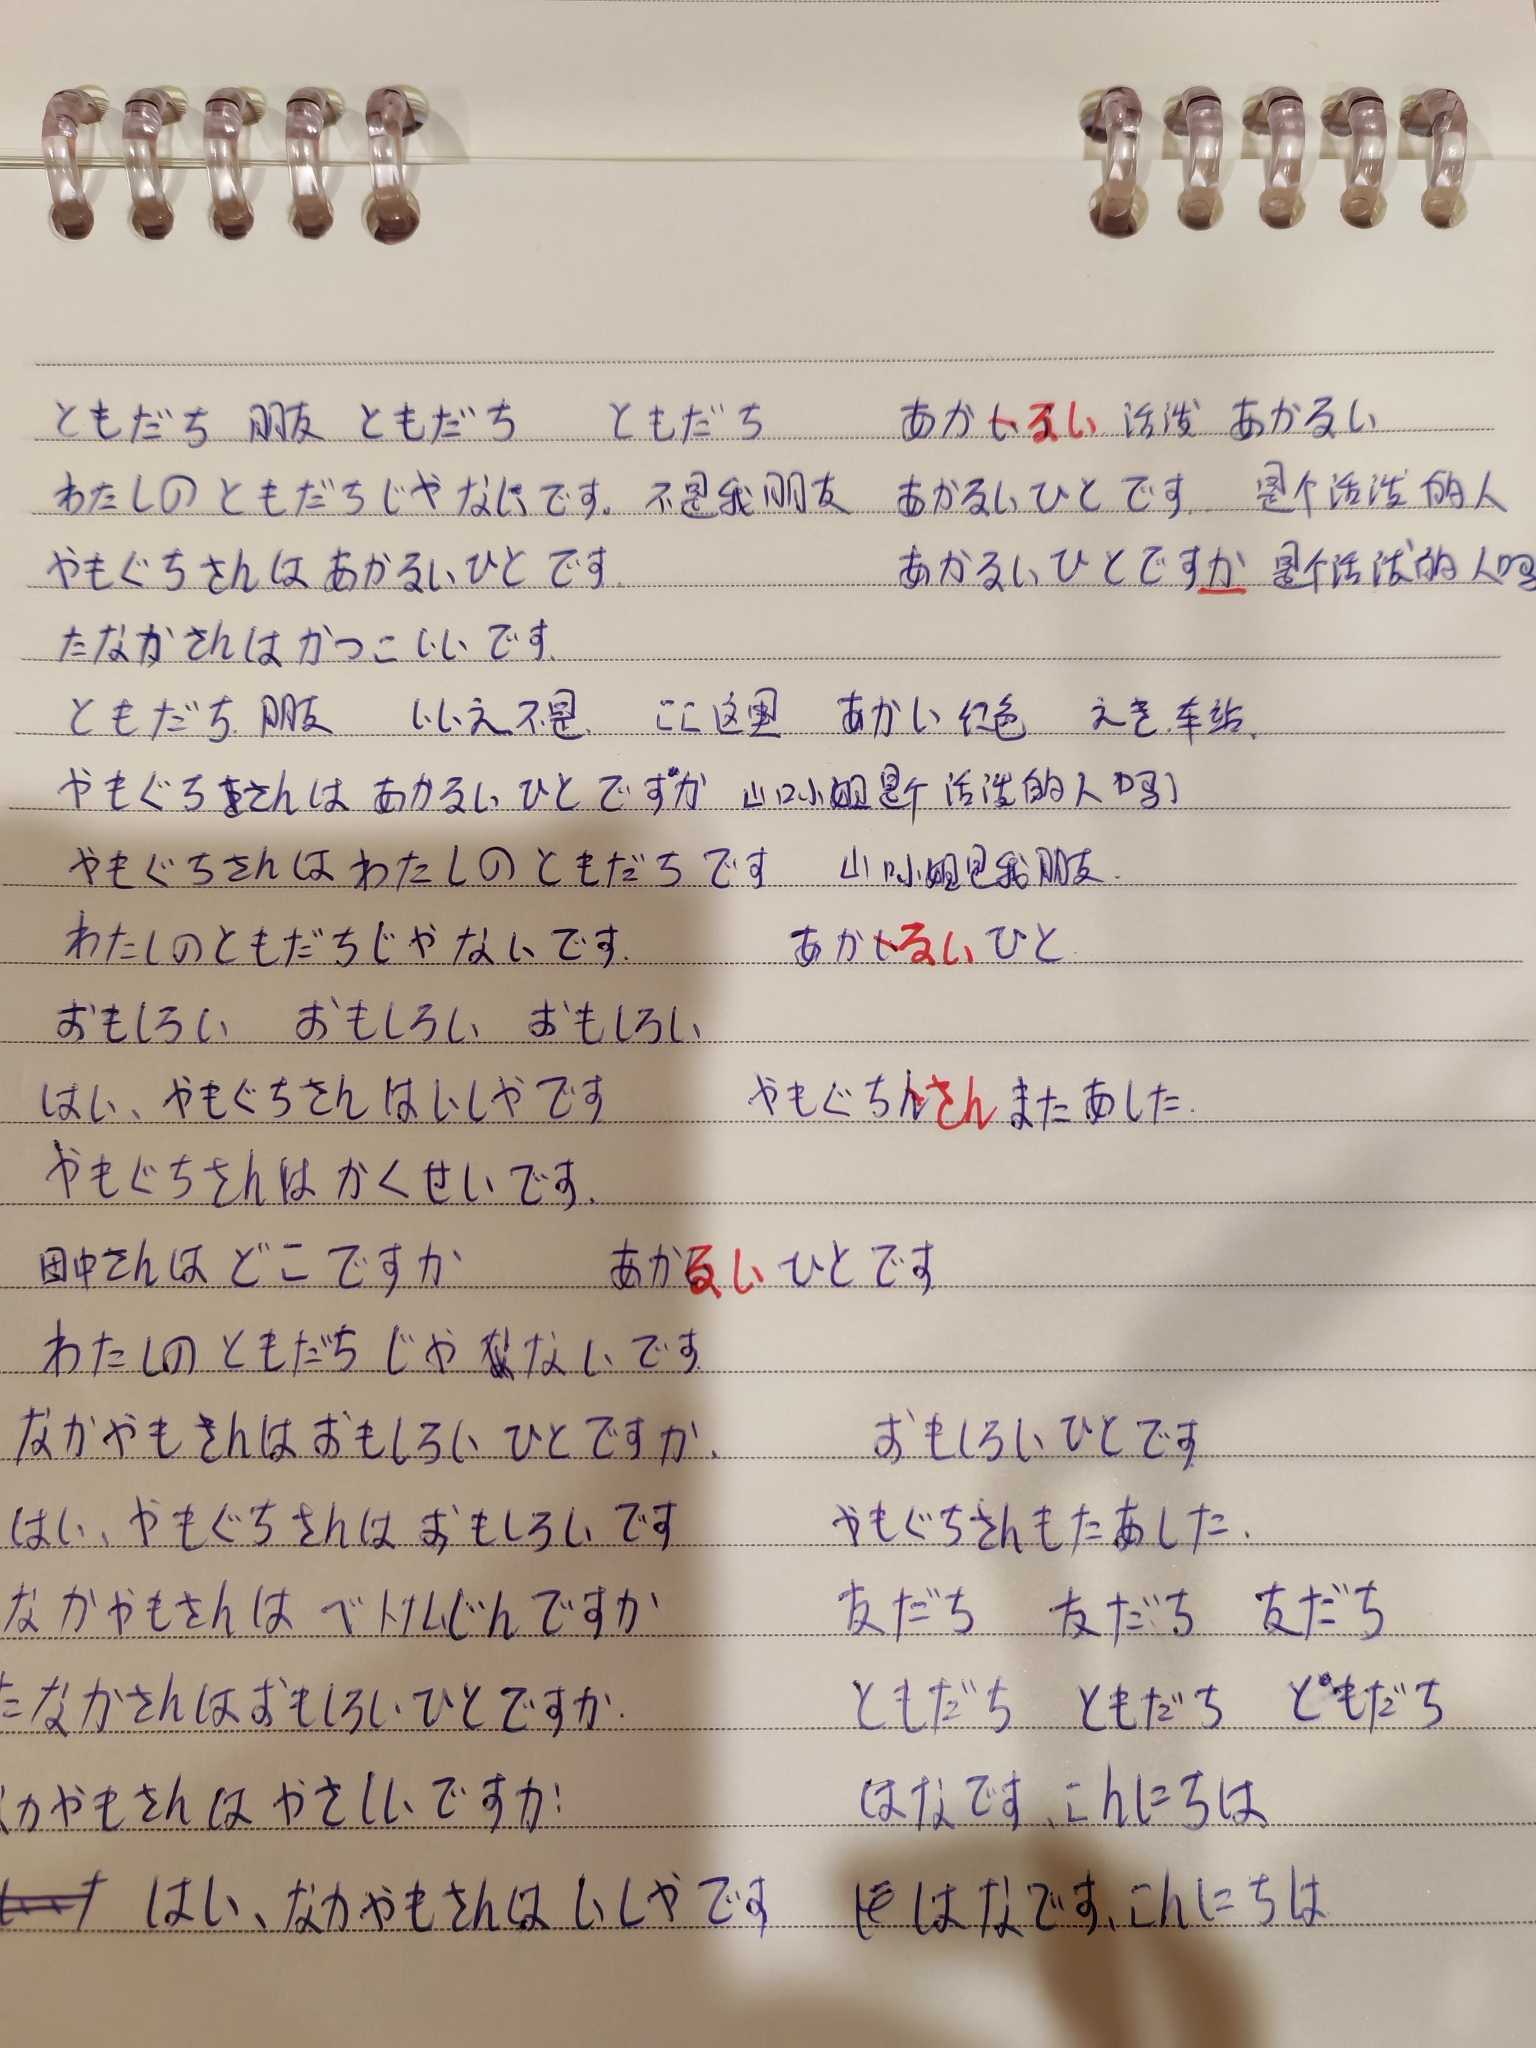 ともだち 朋友 ともだち ともだち あかるい 活泼 あかるい
わたしのともだちじゃないです。不是我朋友 あかるいひとです 是个活泼的人
やもぐちさんはあかるいひとです. あかるいひとですか 是个活泼的人吗
たなかさんはかっこいいです.
ともだち 朋友 いいえ 不是. ここ 这里 あかい 红色 えき 车站.
やもぐちさんは あかるいひとですか 山口小姐是个活泼的人吗
やもぐちさんはわたしのともだちです 山口小姐是我朋友.
わたしのともだちじゃないです. あかるいひと.
おもしろい おもしろい おもしろい
はい、やもぐちさんはいしゃです やもぐちさんまたあした.
やもぐちさんはかくせいです.
田中さんはどこですか あかるいひとです
わたしのともだちじゃないです
なかやもさんはおもしろいひとですか. おもしろいひとです
はい、やもぐちさんはおもしろいです やもぐちさんもたあした.
なかやもさんはベトナムじんですか 友だち 友だち 友だち
たなかさんはおもしろいひとですか. ともだち ともだち ともだち
かやもさんはやさしいですか はなです、こんにちは
はい、なかやもさんはいしゃです はなです、こんにちは